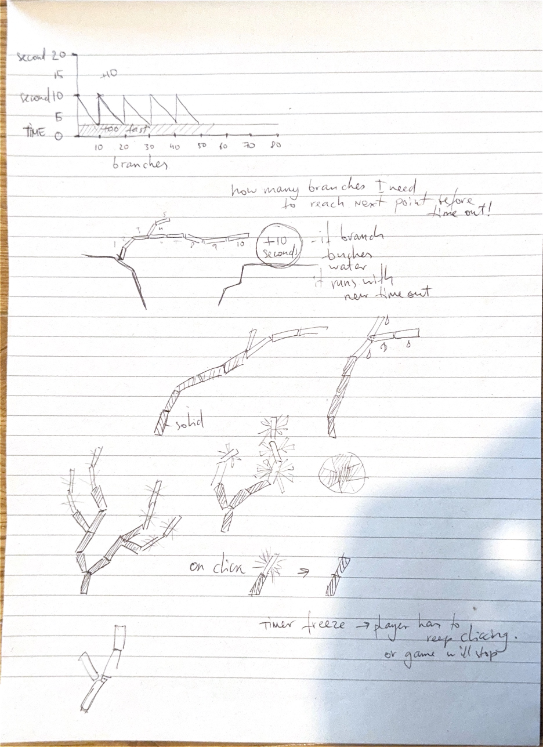 second 20
15 +10
second 10
5
TIME 0 too fast
10 20 30 40 50 60 70 80
branches
how many branches I need
to reach next point before
time out!
+10
seconds
- if branch
water
it runs with
new time out
solid
on click
Timer freeze → player has to
keep clicing.
or game will stop